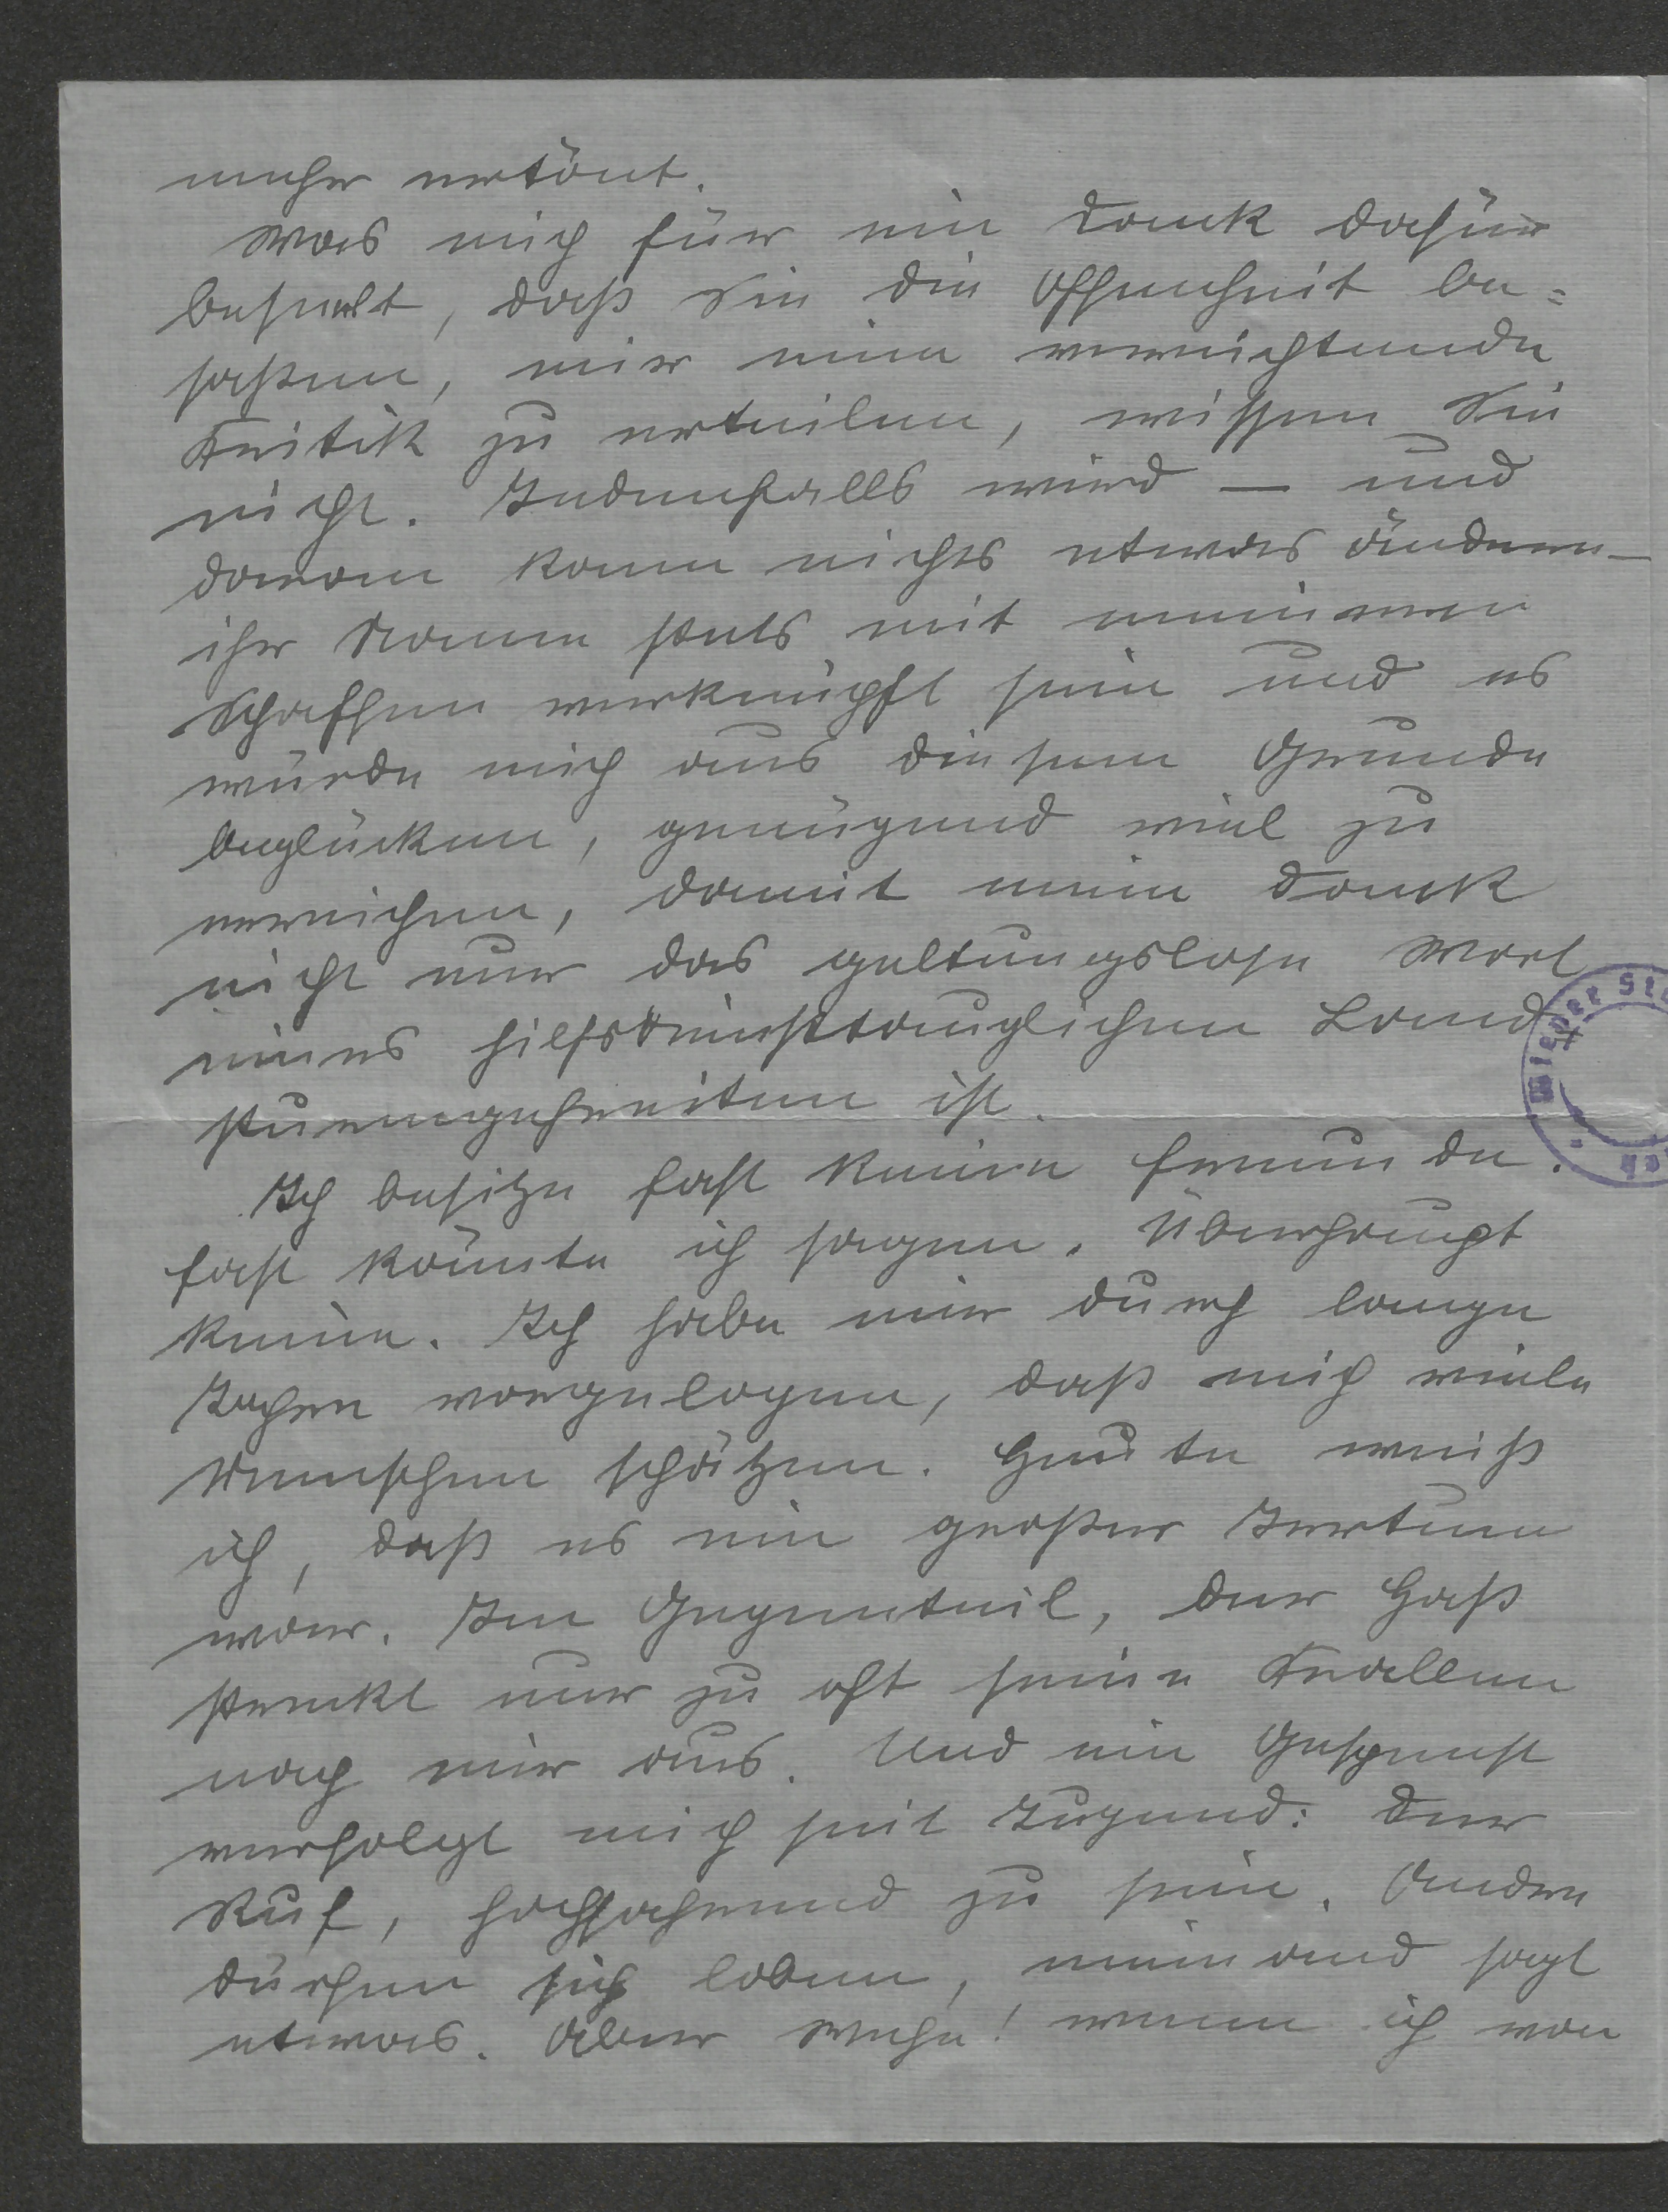 mehr ertönt.
Was mich für ein Dank dafür
beseelt, daß Sie die Offenheit be=
saßen, mir eine vernichtende
Kritik zu erteilen, wissen Sie
nicht. Jedenfalls wird — und
daran kann nichts etwas ändern —
ihr Name stets mit meinem
Schaffen verknüpft sein und es
würde mich aus diesem Grunde
beglücken, genügend viel zu
erreichen, damit mein Dank
nicht nur das geltungslose Wort
eines hilfsdiensttauglichen Land
sturmgefreiten ist.
Ich besitze fast keine Freunde.
Fast könnte ich sagen. Überhaupt
keine. Ich habe mir durch lange
Jahre vorgelogen, daß mich viele
Menschen schätzen. Heute weiß
ich, daß es ein großer Irrtum
war. Im Gegenteil, der Haß
streckt nur zu oft seine Krallen
nach mir aus. Und ein Gespenst
verfolgt mich seit Jugend: der
Ruf, hochfahrend zu sein. Andre
dürfen sich loben, niemand sagt
etwas. Aber wehe! wenn ich von
Wiener St